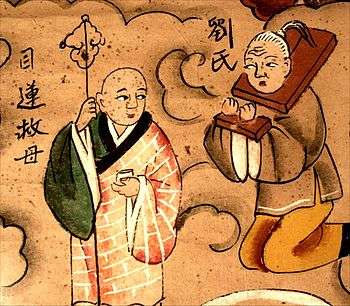 目蓮救母
劉氏